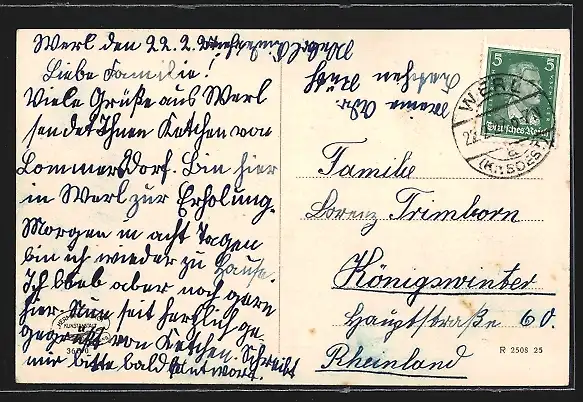 Werl den 22.2.
Liebe Familie!
Viele Grüße aus Werl
sendet Ihnen Ketchen von
Lommersdorf. Bin hier
in Werl zur Erholung.
Morgen in acht Tagen
bin ich wieder zu Hause.
Ich bleb aber noch gern
hier. Nun seit herzlich ge
gegrüßt von Ketchen. Schreibt
mir bitte bald Antwort.
Meine Adr.
5 5
Deutsches Reich
WERL
(KR. SOEST)
Familie
Lorenz Trimborn
Königswinter
Hauptstraße 60.
Rheinland
R 2508 25